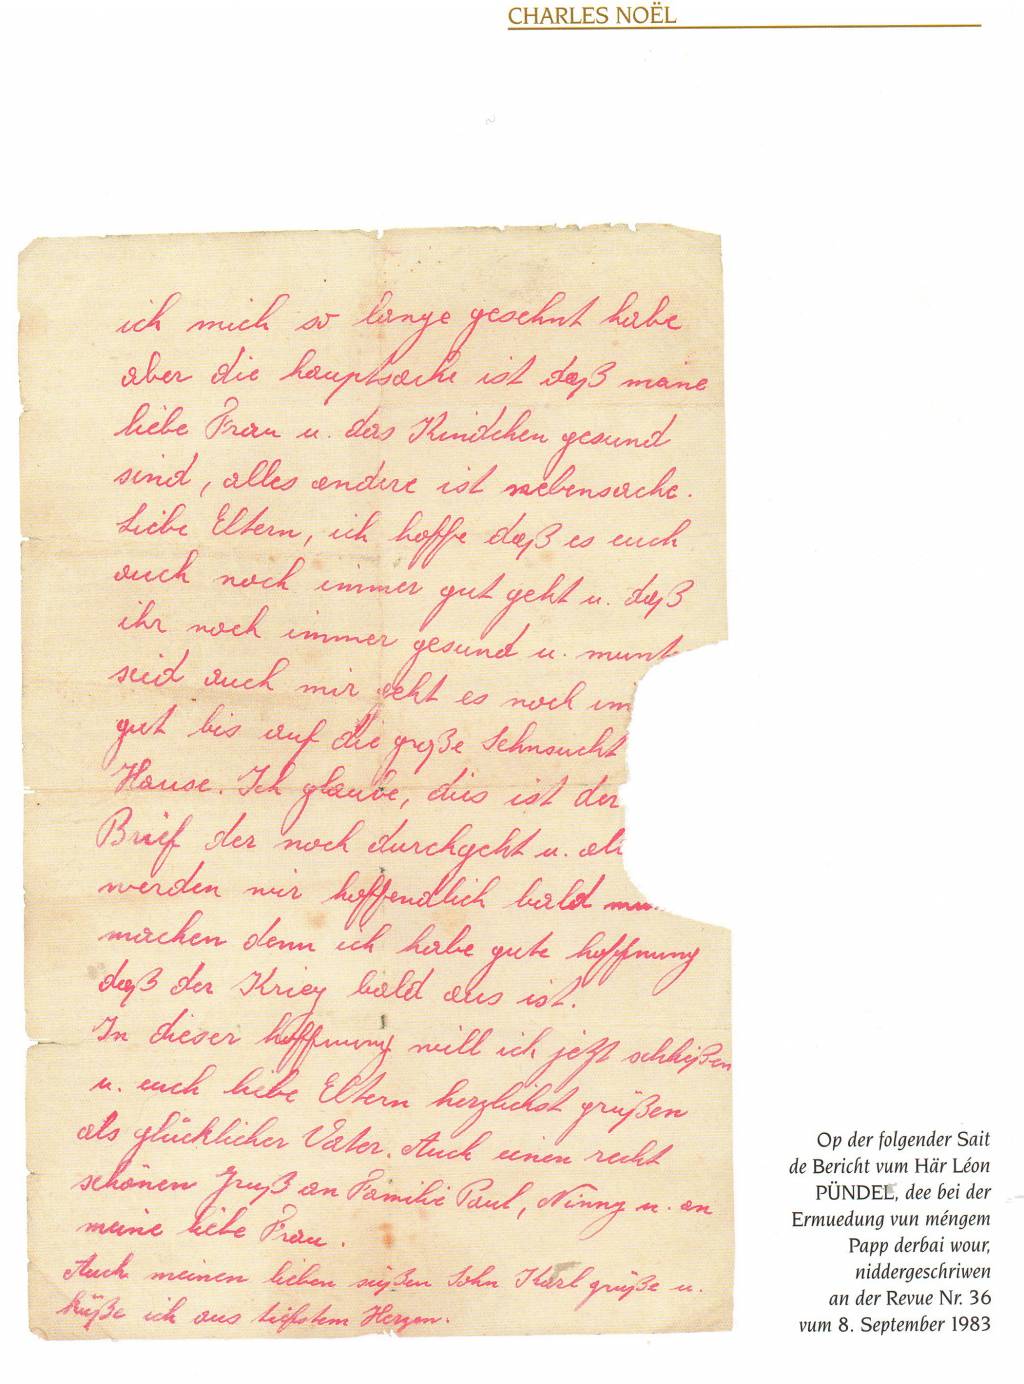 CHARLES NOËL
ich mich so lange gesehnt habe
aber die hauptsache ist daß meine
liebe Frau u. das Kindchen gesund
sind, alles andere ist nebensache.
Liebe Eltern, ich hoffe daß es euch
auch noch immer gut geht u. daß
ihr noch immer gesund u. munt
seid auch mir geht es noch im
gut bis auf die große Sehnsucht
Hause. Ich glaube, dies ist der
Brief der noch durchgeht u.
werden wir hoffendlich bald
machen denn ich habe gute hoffnung
daß der Krieg bald aus ist.
In dieser hoffnung will ich jetzt schließen
u. euch liebe Eltern herzlichst grüßen
als glücklicher Vater. Auch einen recht
schönen Gruß an Familie Paul, Ninny u. an
meine liebe Frau.
Auch meinen lieben süßen Sohn Karl grüße u.
küße ich aus tiefstem Herzen.
Op der folgender Sait
de Bericht vum Här Léon
PÜNDEL, dee bei der
Ermuedung vun méngem
Papp derbai wour,
niddergeschriwen
an der Revue Nr. 36
vum 8. September 1983